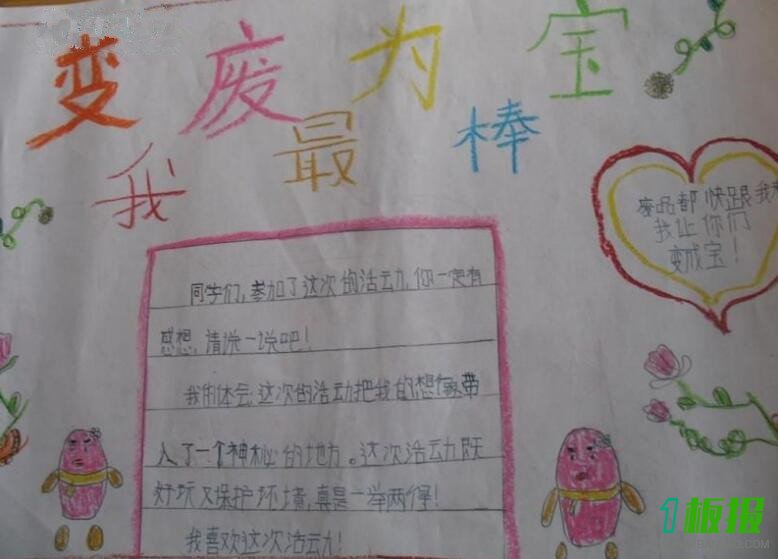 变废为宝
我最棒
废品都快跟我
我让你们
变成宝！
同学们，参加了这次的活动，你一定有
感想，请说一说吧！
我的体会：这次的活动把我的想像带
入了一个神秘的地方。这次活动既
好玩又保护环境，真是一举两得！
我喜欢这次活动！
板报